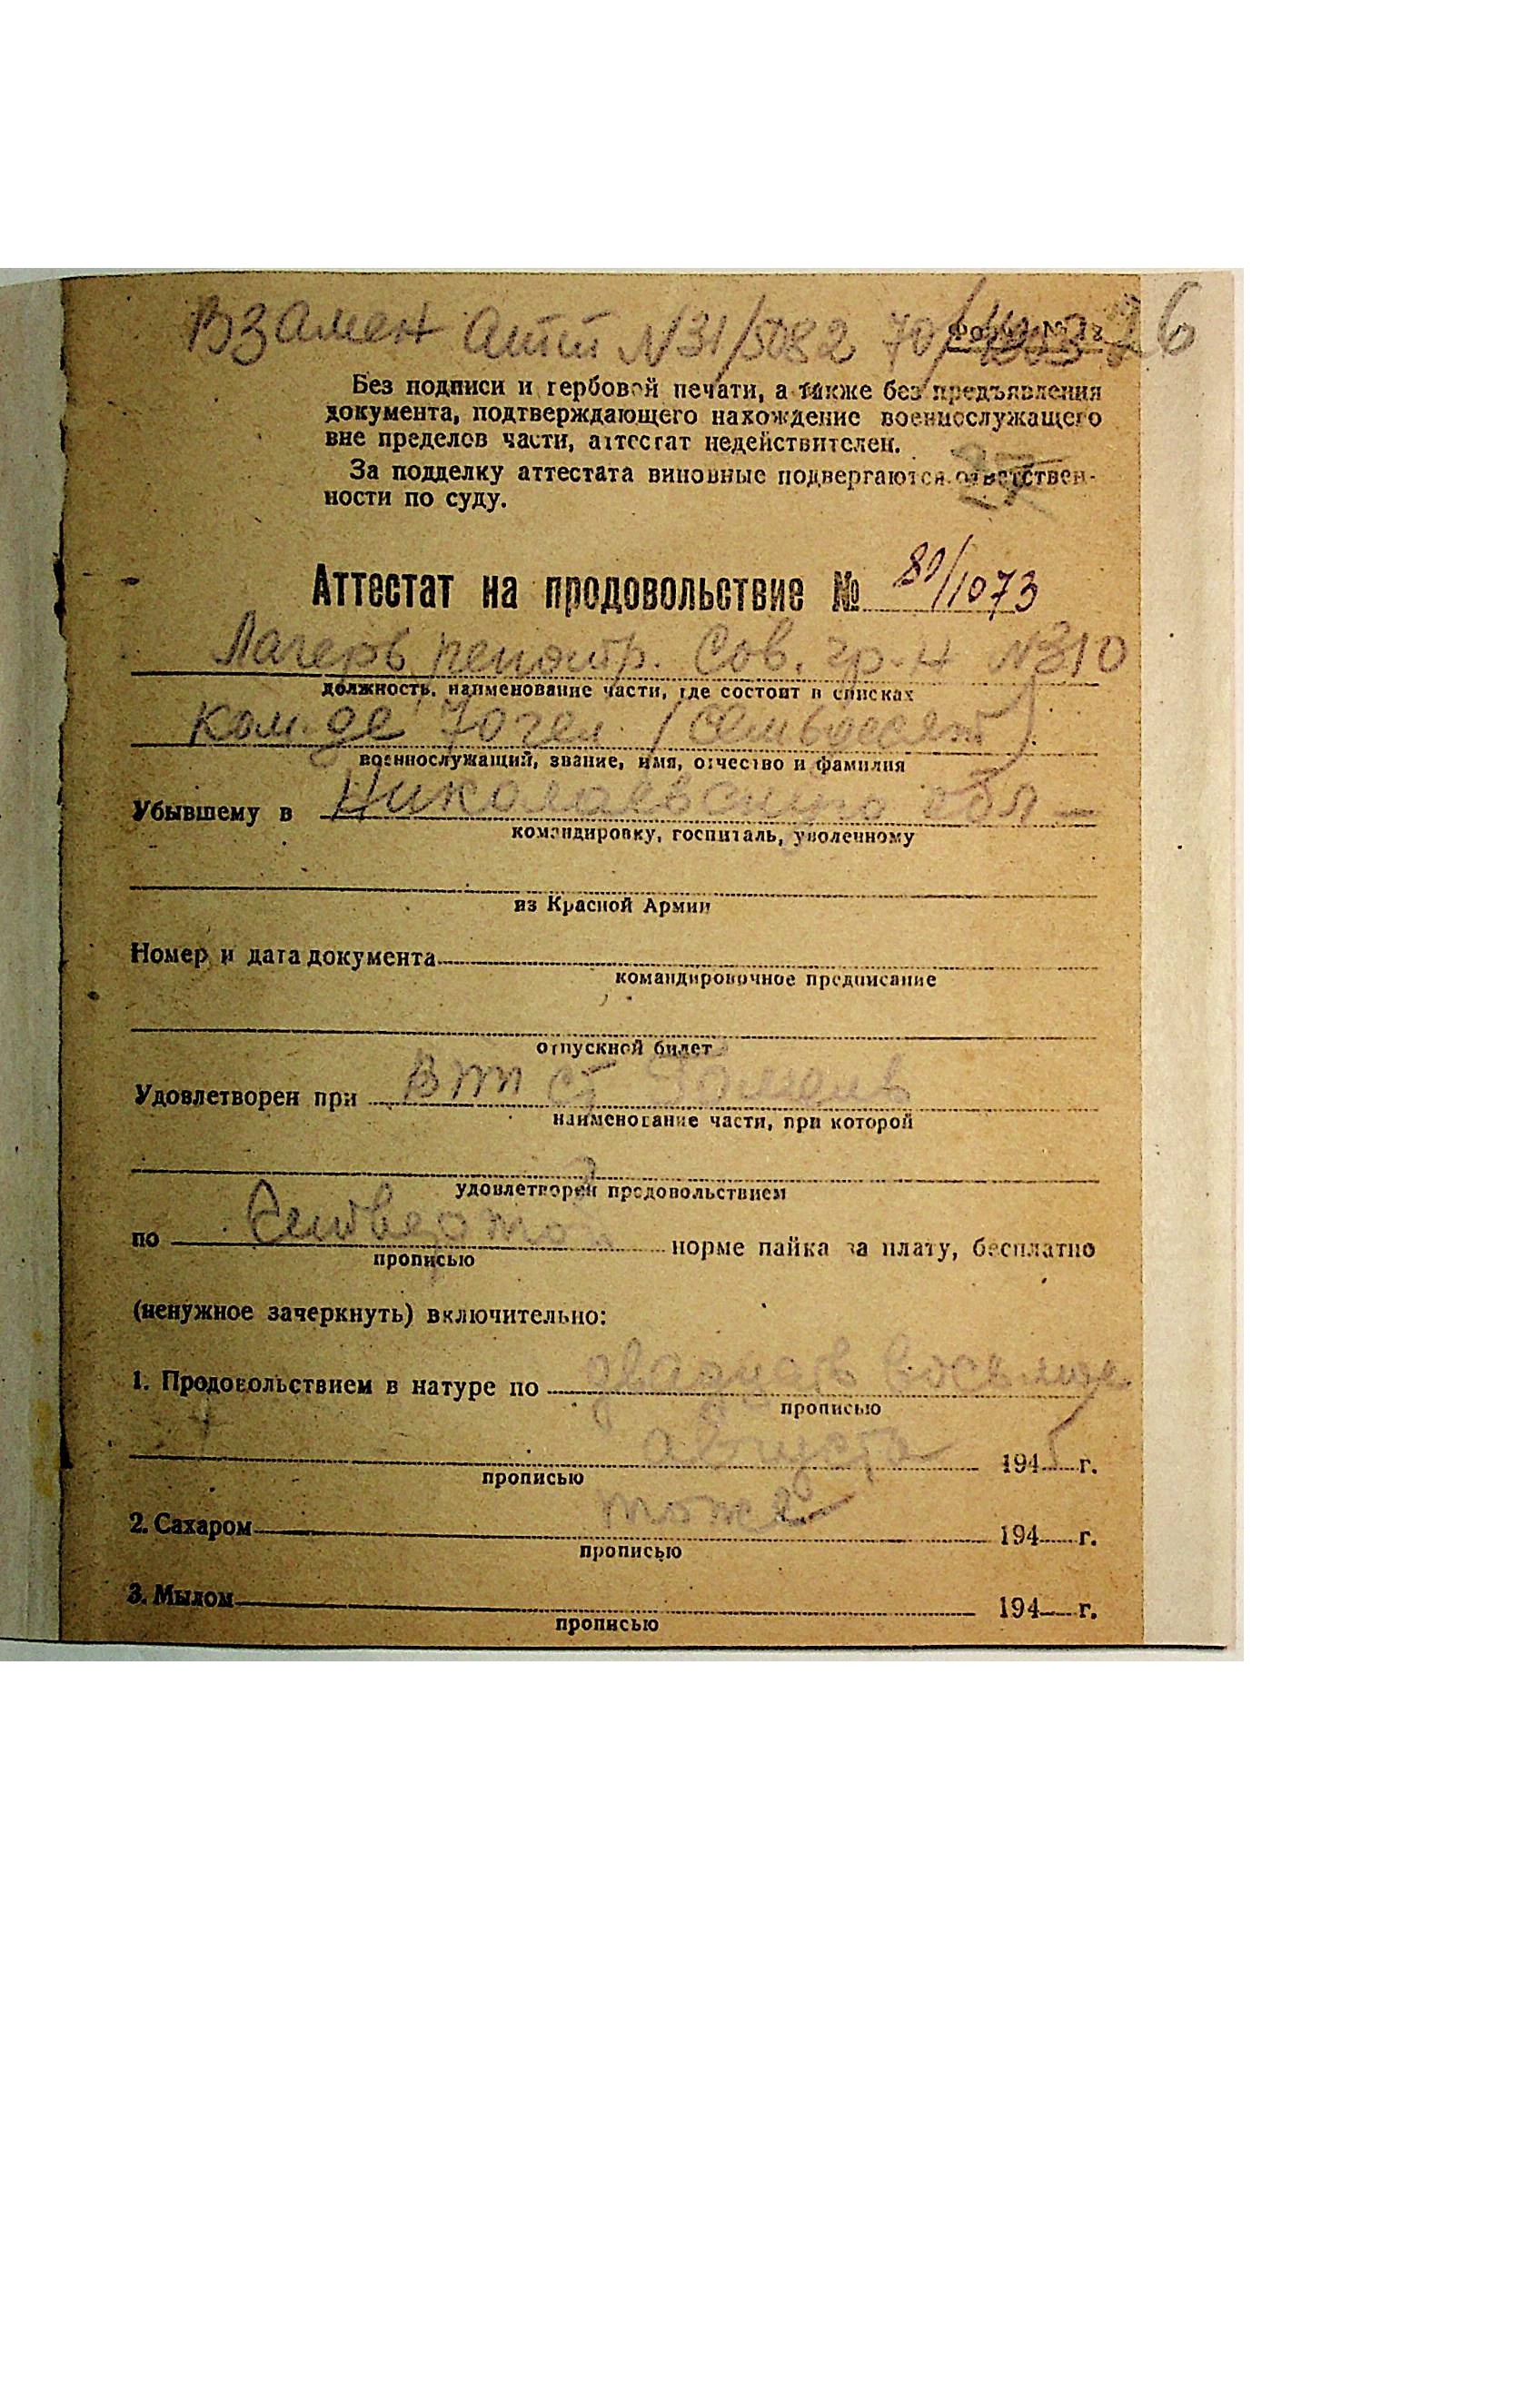 Взамен Атт N31/5082 70/
Без подписи и гербовой печати, а также без предъявления
документа, подтверждающего нахождение военнослужащего
вне пределов части, аттестат недействителен.
За подделку аттестата виновные подвергаются ответствен-
ности по суду.
Аттестат на продовольствие № 80/1073
Лагерь репатр. Сов. гр-н N310
должность, наименование части, где состоит в списках
ком-де 70 чел. (семьдесят)
военнослужащий, звание, имя, отчество и фамилия
Убывшему в Николаевскую обл —
командировку, госпиталь, уволенному
из Красной Армии
Номер и дата документа
командировочное предписание
отпускной билет
Удовлетворен при ст Гомель
наименование части, при которой
удовлетворен продовольствием
по норме пайка за плату, бесплатно
прописью
(ненужное зачеркнуть) включительно:
1. Продовольствием в натуре по двадцать восьмое
прописью
августа 1945 г.
прописью
2. Сахаром тоже 194 г.
прописью
3. Мылом 194 г.
прописью